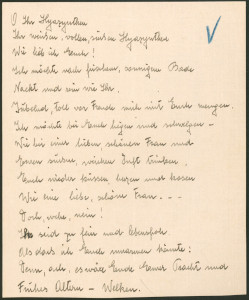 O Ihr Hyazynthen
Ihr weissen, vollen, süssen Hyazynthen
Wie lieb ich Euch!
Ich möchte nach frischem, sonnigem Bade
Nackt und wie Ihr.
Jubelnd, toll vor Freude mich mit Euch mengen.
Ich möchte bei Euch liegen und schwelgen –
Wie bei einer lieben schönen Frau und
Euren süssen, weichen Duft trinken.
Euch wieder küssen, herzen und kosen
Wie eine liebe, schöne Frau. . .
Doch, wehe, nein!
Ihr seid zu fein und
Als dass ich Euch umarmen könnte:
Denn, ach, es wäre Ende Eurer Pracht und
Frühes Altern – Welken.